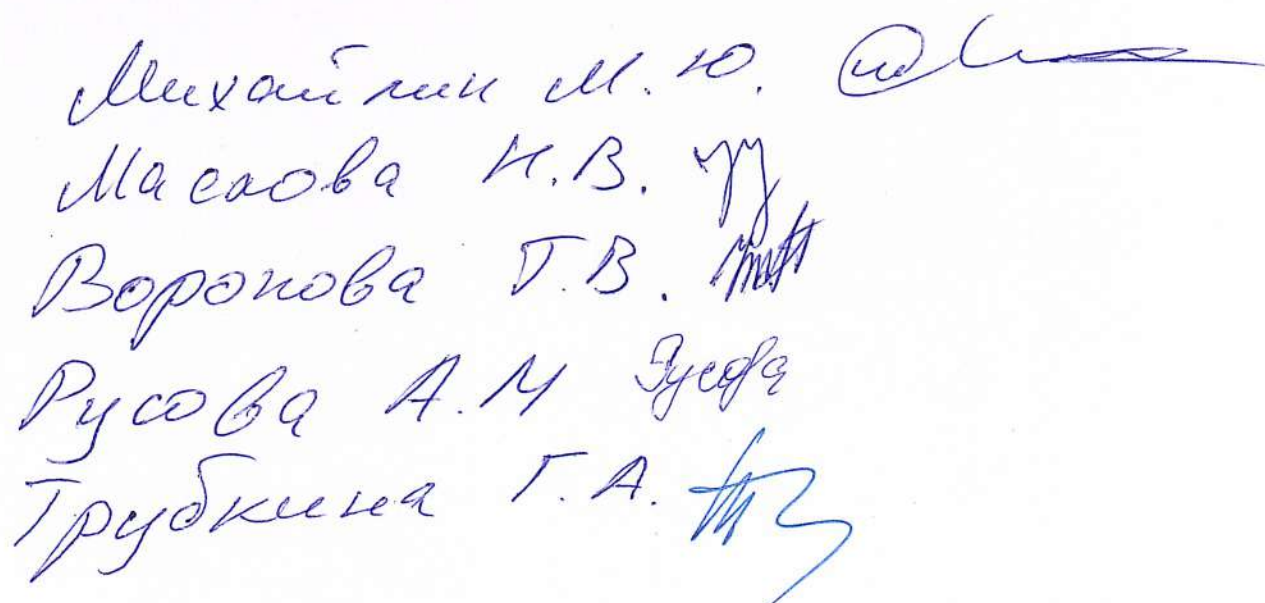 Михайлин М. Ю.
Маслова Н. В.
Воронова Т. В.
Русова А. М Русова
Трубкина Г. А.